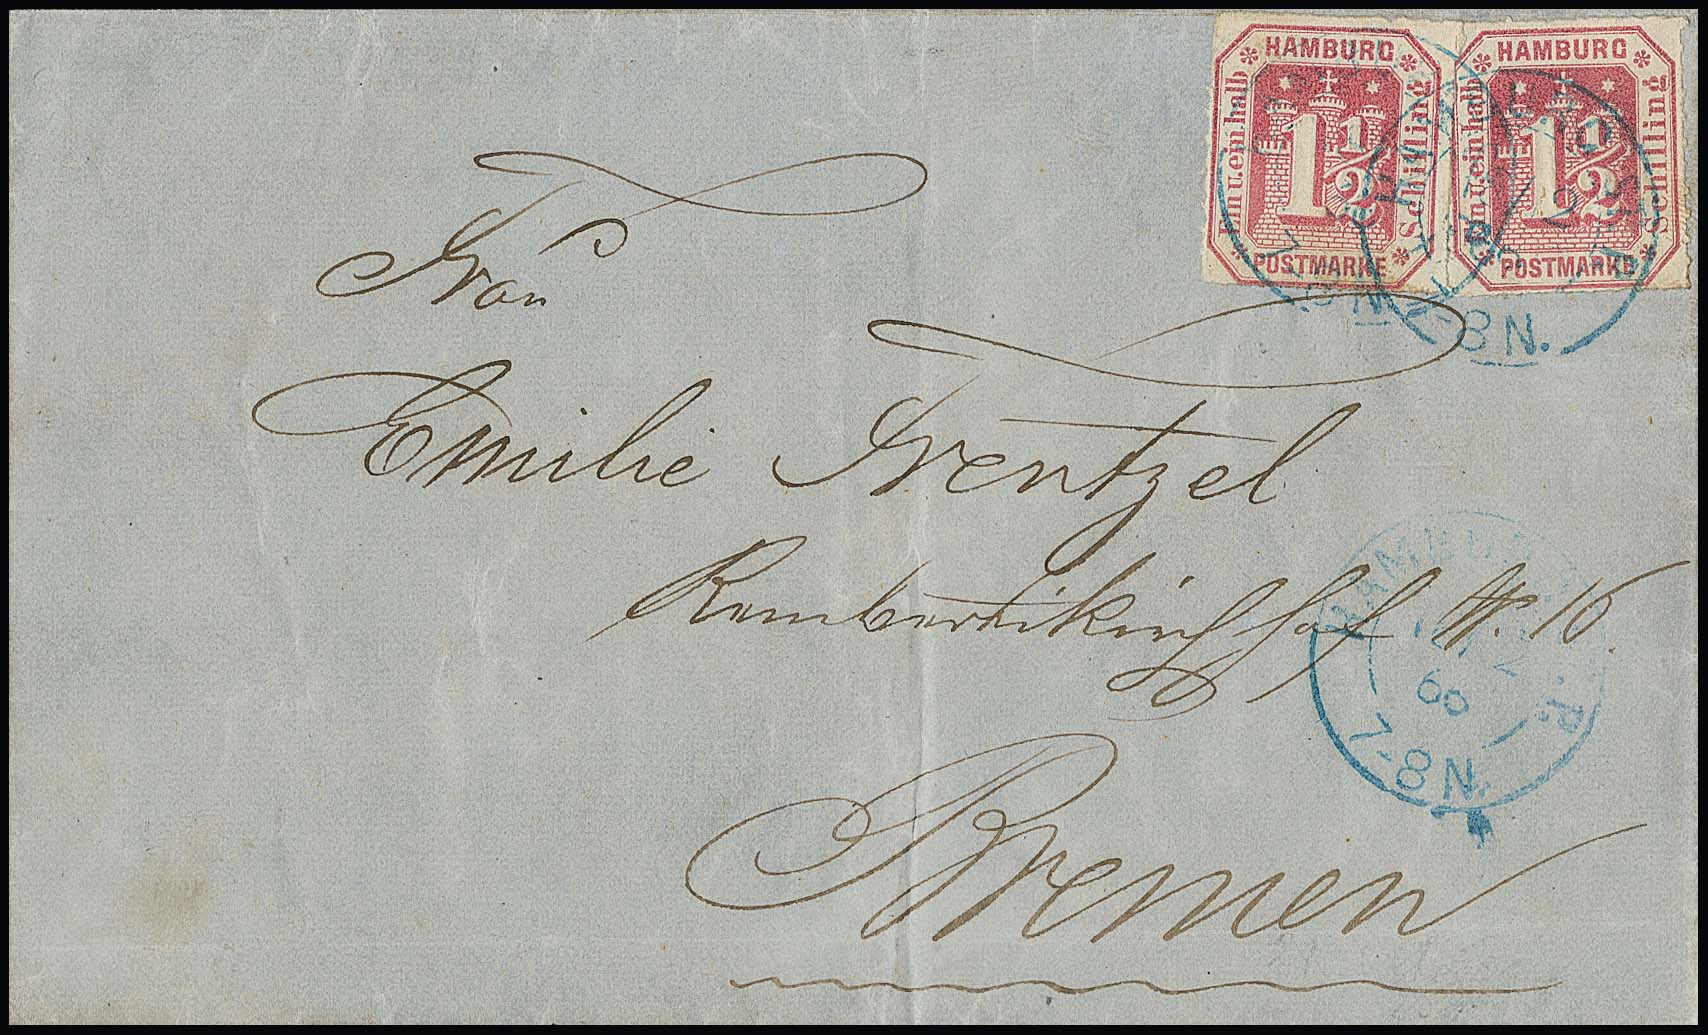 HAMBURG
Ein u. ein halb
1 1/2
Schilling
POSTMARKE
HAMBURG
Ein u. ein halb
1 1/2
Schilling
POSTMARKE
7-8N.
Frau
Emilie Frentzel
Rembertikirchhof №. 16
Bremen
HAMBURG
7-8N.